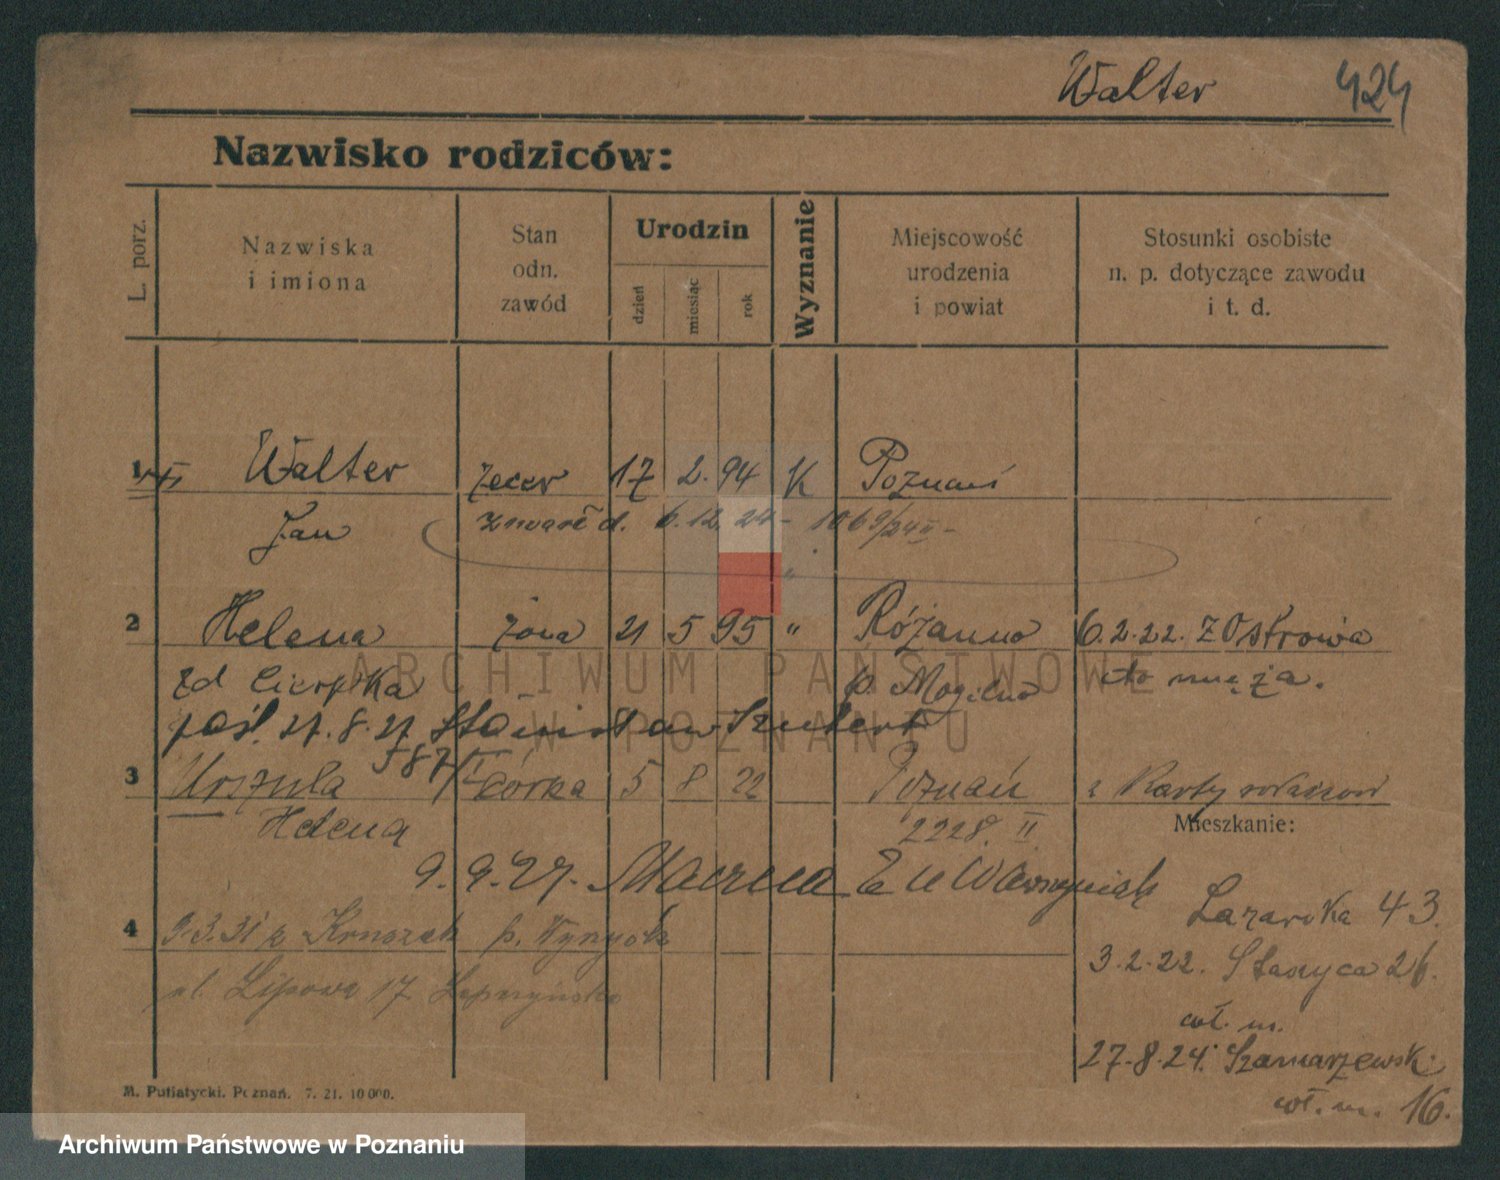 Walter 424
Nazwisko rodziców:
L. porz.
Nazwiska
i imiona
Stan
odn.
zawód
Urodzin
dzień
miesiąc
rok
Wyznanie
Miejscowość
urodzenia
i powiat
Stosunki osobiste
n. p. dotyczące zawodu
i t. d.
1 Walter zecer 17 2. 94 K Poznań
Jan zmarł d. 6.12.24 - 1069/24 II -
2 Helena żona 21 5 95 " Różanno 6.2.22. z Ostrowa
zd Cierpka p. Mogilno do męża.
ARCHIWUM PAŃSTWOWE
pośl. 27.8.27 Stanisław Szubert
W POZNANIU
3 Urszula 587/I córka 5 8 22 Poznań z Karty
Helena 2228. II
Mieszkanie:
9.9.27.
4 9.3.31 z p.
Lazarska 43.
ul. Lipowa 17
3.2.22. Staszyca 26.
wł. m.
27.8.24. Szamarzewsk.
wł. m. 16.
M. Putiatycki. Poznań. 7. 21. 10 000.
Archiwum Państwowe w Poznaniu